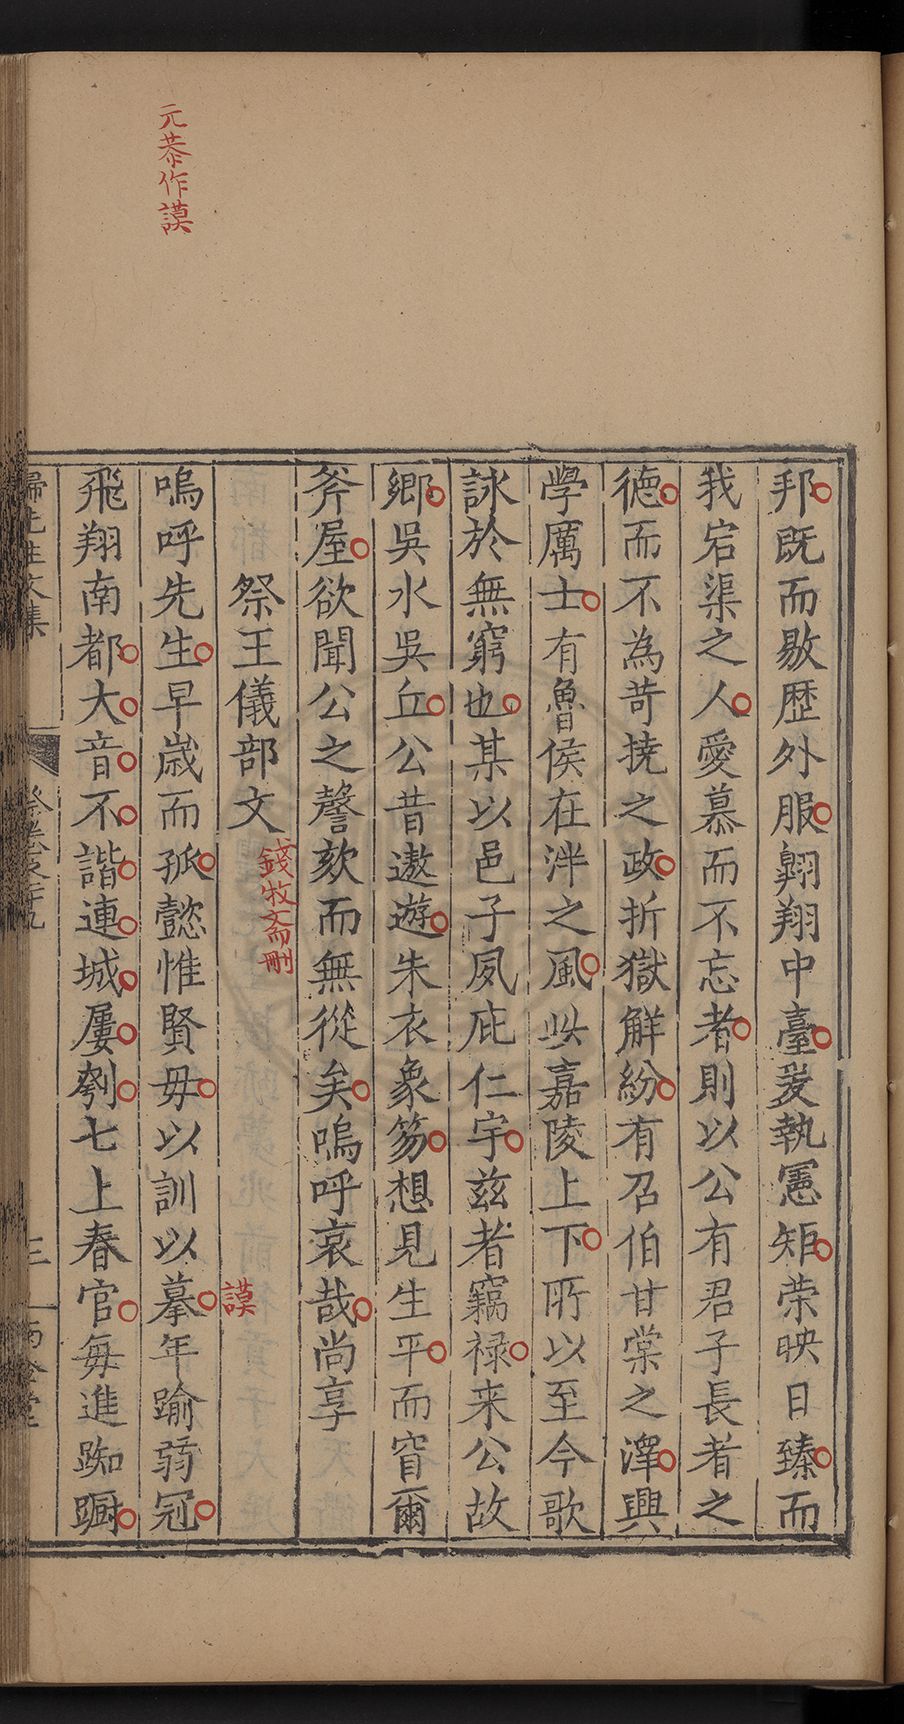 元恭作謨
邦既而敭歷外服翱翔中臺爰執憲矩荣映日臻而
我宕渠之人愛慕而不忘者則以公有君子長者之
德而不為苛撓之政折獄解紛有召伯甘棠之澤興
學厲士有魯侯在泮之風此嘉陵上下所以至今歌
詠於無窮也某以邑子夙庇仁宇兹者竊禄来公故
鄉吳水吳丘公昔遨遊朱衣象笏想見生平而窅爾
斧屋欲聞公之謦欬而無從矣嗚呼哀哉尚享
祭王儀部文
錢牧斋刪
嗚呼先生早歲而孤懿惟賢毋以訓以摹年踰弱冠
謨
飛翔南都大音不諧連城屢刳七上春官每進踟蹰
歸先生文集
卷之廿九
三